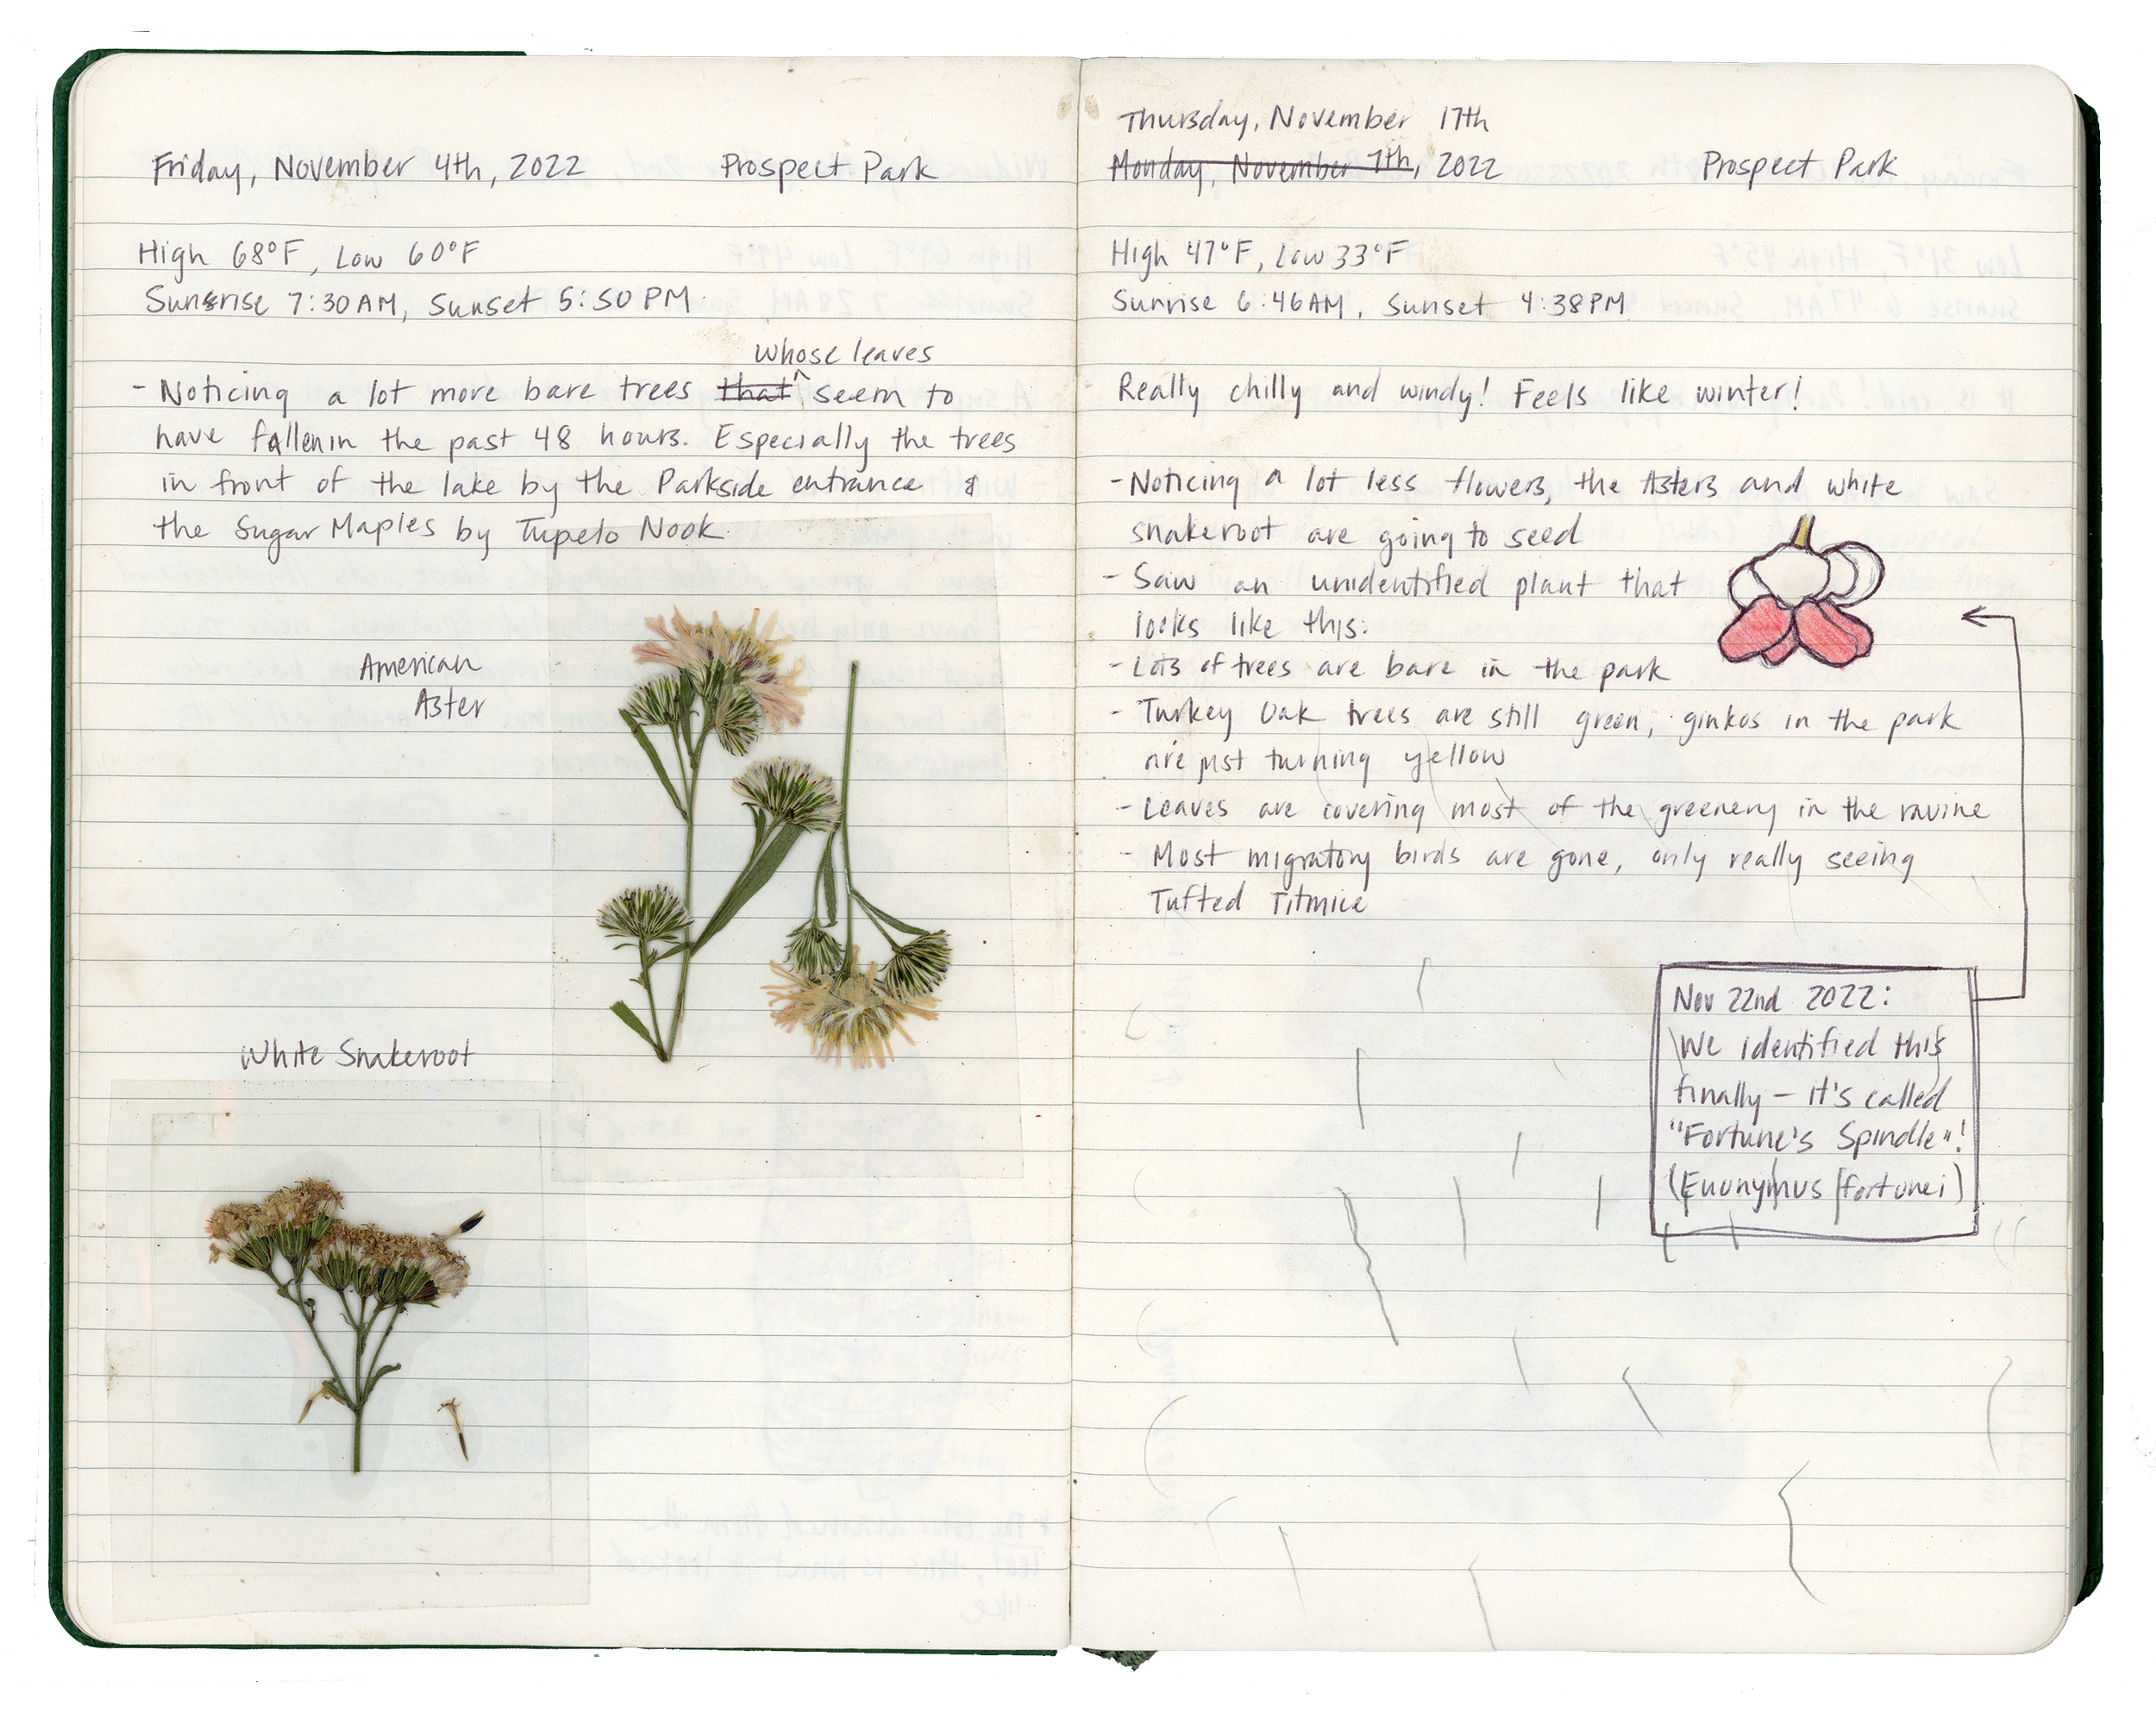 Friday, November 4th, 2022 Prospect Park
High 68°F, Low 60°F
Sunrise 7:30AM, Sunset 5:50PM.
whose leaves
- Noticing a lot more bare trees that ^ seem to
have fallen in the past 48 hours. Especially the trees
in front of the lake by the Parkside entrance &
the Sugar Maples by Tupelo Nook.
American
Aster
White Snakeroot
Thursday, November 17th
Monday, November 7th, 2022 Prospect Park
High 47°F, Low 33°F
Sunrise 6:46AM, Sunset 4:38PM
Really chilly and windy! Feels like winter!
- Noticing a lot less flowers, the Asters and white
snakeroot are going to seed
- Saw an unidentified plant that
looks like this:
- Lots of trees are bare in the park
- Turkey Oak trees are still green, ginkos in the park
are just turning yellow
- Leaves are covering most of the greenery in the ravine
- Most migratory birds are gone, only really seeing
Tufted Titmice
Nov 22nd 2022:
We identified this
finally - it's called
"Fortune's Spindle"!
(Euonymus fortunei)